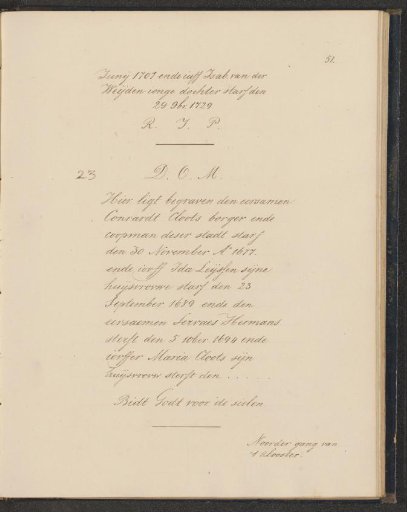 51.
Junij 1701 ende juff Isab. van der
Weijden jonge dochter starf den
29 9br 1729
R. I. P.
23 D. O. M.
Hier ligt begraven den eersamen
Conrardt Cloots borger ende
coopman deser stadt starf
den 30 November Aº 1677
ende joeff Ida Leijssen sijne
huijsvrouwe starf den 23
September 1689 ende den
eersaemen Servaes Hermans
sterft den 5 10ber 1694 ende
joeffer Maria Cloots sijn
huijsvrouw sterft den . . . . .
Bidt Godt voor de seelen
Noorder gang van
't klooster.